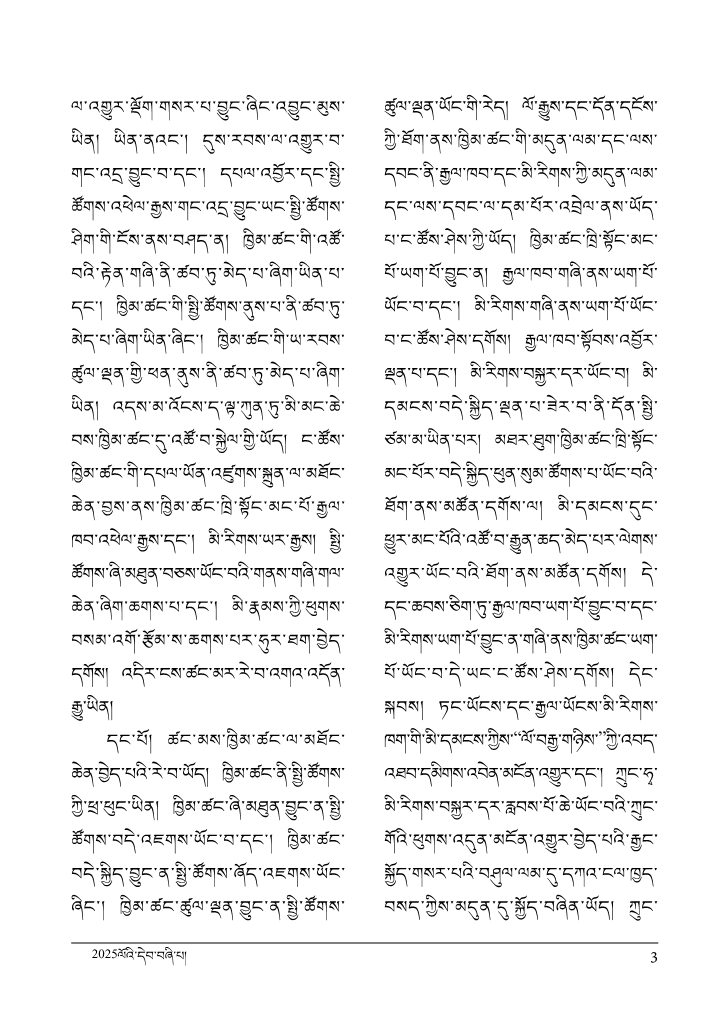 ལ་འགྱུར་ལྡོག་གསར་པ་བྱུང་ཞིང་འབྱུང་མུས་
ཡིན། ཡིན་ནའང་། དུས་རབས་ལ་འགྱུར་བ་
གང་འདྲ་བྱུང་བ་དང་། དཔལ་འབྱོར་དང་སྤྱི་
ཚོགས་འཕེལ་རྒྱས་གང་འདྲ་བྱུང་ཡང་སྤྱི་ཚོགས་
ཤིག་གི་ངོས་ནས་བཤད་ན། ཁྱིམ་ཚང་གི་འཚོ་
བའི་རྟེན་གཞི་ནི་ཚབ་ཏུ་མེད་པ་ཞིག་ཡིན་པ་
དང་། ཁྱིམ་ཚང་གི་སྤྱི་ཚོགས་ནུས་པ་ནི་ཚབ་ཏུ་
མེད་པ་ཞིག་ཡིན་ཞིང་། ཁྱིམ་ཚང་གི་ཡ་རབས་
ཚུལ་ལྡན་གྱི་ཕན་ནུས་ནི་ཚབ་ཏུ་མེད་པ་ཞིག་
ཡིན། འདས་མ་འོངས་ད་ལྟ་ཀུན་ཏུ་མི་མང་ཆེ་
བས་ཁྱིམ་ཚང་དུ་འཚོ་བ་སྐྱེལ་གྱི་ཡོད། ང་ཚོས་
ཁྱིམ་ཚང་གི་དཔལ་ཡོན་འཛུགས་སྐྲུན་ལ་མཐོང་
ཆེན་བྱས་ནས་ཁྱིམ་ཚང་ཁྲི་སྟོང་མང་པོ་རྒྱལ་
ཁབ་འཕེལ་རྒྱས་དང་། མི་རིགས་ཡར་རྒྱས། སྤྱི་
ཚོགས་ཞི་མཐུན་བཅས་ཡོང་བའི་གནས་གཞི་གལ་
ཆེན་ཞིག་ཆགས་པ་དང་། མི་རྣམས་ཀྱི་ཕུགས་
བསམ་འགོ་རྩོམ་ས་ཆགས་པར་ཧུར་ཐག་བྱེད་
དགོས། འདིར་ངས་ཚང་མར་རེ་བ་འགའ་འདོན་
རྒྱུ་ཡིན།
དང་པོ། ཚང་མས་ཁྱིམ་ཚང་ལ་མཐོང་
ཆེན་བྱེད་པའི་རེ་བ་ཡོད། ཁྱིམ་ཚང་ནི་སྤྱི་ཚོགས་
ཀྱི་ཕྲ་ཕུང་ཡིན། ཁྱིམ་ཚང་ཞི་མཐུན་བྱུང་ན་སྤྱི་
ཚོགས་བདེ་འཇགས་ཡོང་བ་དང་། ཁྱིམ་ཚང་
བདེ་སྐྱིད་བྱུང་ན་སྤྱི་ཚོགས་ཞོད་འཇགས་ཡོང་
ཞིང་། ཁྱིམ་ཚང་ཚུལ་ལྡན་བྱུང་ན་སྤྱི་ཚོགས་
ཚུལ་ལྡན་ཡོང་གི་རེད། ལོ་རྒྱུས་དང་དོན་དངོས་
ཀྱི་ཐོག་ནས་ཁྱིམ་ཚང་གི་མདུན་ལམ་དང་ལས་
དབང་ནི་རྒྱལ་ཁབ་དང་མི་རིགས་ཀྱི་མདུན་ལམ་
དང་ལས་དབང་ལ་དམ་པོར་འབྲེལ་ནས་ཡོད་
པ་ང་ཚོས་ཤེས་ཀྱི་ཡོད། ཁྱིམ་ཚང་ཁྲི་སྟོང་མང་
པོ་ཡག་པོ་བྱུང་ན། རྒྱལ་ཁབ་གཞི་ནས་ཡག་པོ་
ཡོང་བ་དང་། མི་རིགས་གཞི་ནས་ཡག་པོ་ཡོང་
བ་ང་ཚོས་ཤེས་དགོས། རྒྱལ་ཁབ་སྟོབས་འབྱོར་
ལྡན་པ་དང་། མི་རིགས་བསྐྱར་དར་ཡོང་བ། མི་
དམངས་བདེ་སྐྱིད་ལྡན་པ་ཟེར་བ་ནི་དོན་སྤྱི་
ཙམ་མ་ཡིན་པར། མཐར་ཐུག་ཁྱིམ་ཚང་ཁྲི་སྟོང་
མང་པོར་བདེ་སྐྱིད་ཕུན་སུམ་ཚོགས་པ་ཡོང་བའི་
ཐོག་ནས་མཚོན་དགོས་ལ། མི་དམངས་དུང་
ཕྱུར་མང་པོའི་འཚོ་བ་རྒྱུན་ཆད་མེད་པར་ལེགས་
འགྱུར་ཡོང་བའི་ཐོག་ནས་མཚོན་དགོས། དེ་
དང་ཆབས་ཅིག་ཏུ་རྒྱལ་ཁབ་ཡག་པོ་བྱུང་བ་དང་
མི་རིགས་ཡག་པོ་བྱུང་ན་གཞི་ནས་ཁྱིམ་ཚང་ཡག་
པོ་ཡོང་བ་དེ་ཡང་ང་ཚོས་ཤེས་དགོས། དེང་
སྐབས། ཏང་ཡོངས་དང་རྒྱལ་ཡོངས་མི་རིགས་
ཁག་གི་མི་དམངས་ཀྱིས་“ལོ་བརྒྱ་གཉིས་”ཀྱི་འབད་
འཐབ་དམིགས་འབེན་མངོན་འགྱུར་དང་། ཀྲུང་ཧྭ་
མི་རིགས་བསྐྱར་དར་རླབས་པོ་ཆེ་ཡོང་བའི་ཀྲུང་
གོའི་ཕུགས་འདུན་མངོན་འགྱུར་བྱེད་པའི་རྒྱང་
སྐྱོད་གསར་པའི་བཤུལ་ལམ་དུ་དཀའ་ངལ་ཁྱད་
བསད་ཀྱིས་མདུན་དུ་སྐྱོད་བཞིན་ཡོད། ཀྲུང་
2025ལོའི་དེབ་བཞི་པ། 3